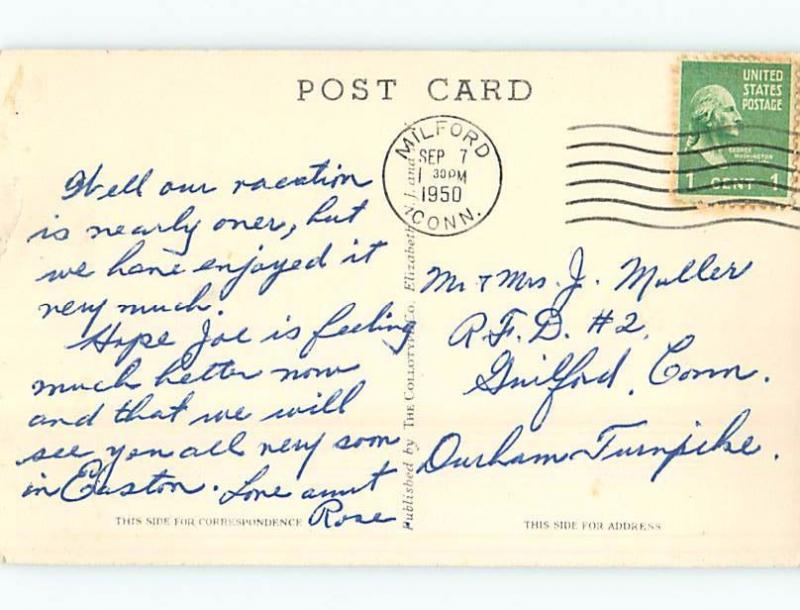 POST CARD
UNITED
STATES
POSTAGE
GEORGE
WASHINGTON
1 CENT 1
MILFORD
SEP 7
1 30PM
1950
CONN.
Well our vacation
is nearly over, but
we have enjoyed it
very much.
Hope Joe is feeling
much better now
and that we will
see you all very soon
in Easton. Love aunt
Rose
Mr & Mrs. J. Muller
R.F.D. #2.
Guilford, Conn.
Durham Turnpike.
Published by THE COLLOTYPE Co. Elizabeth, N.J. and
THIS SIDE FOR CORRESPONDENCE
THIS SIDE FOR ADDRESS